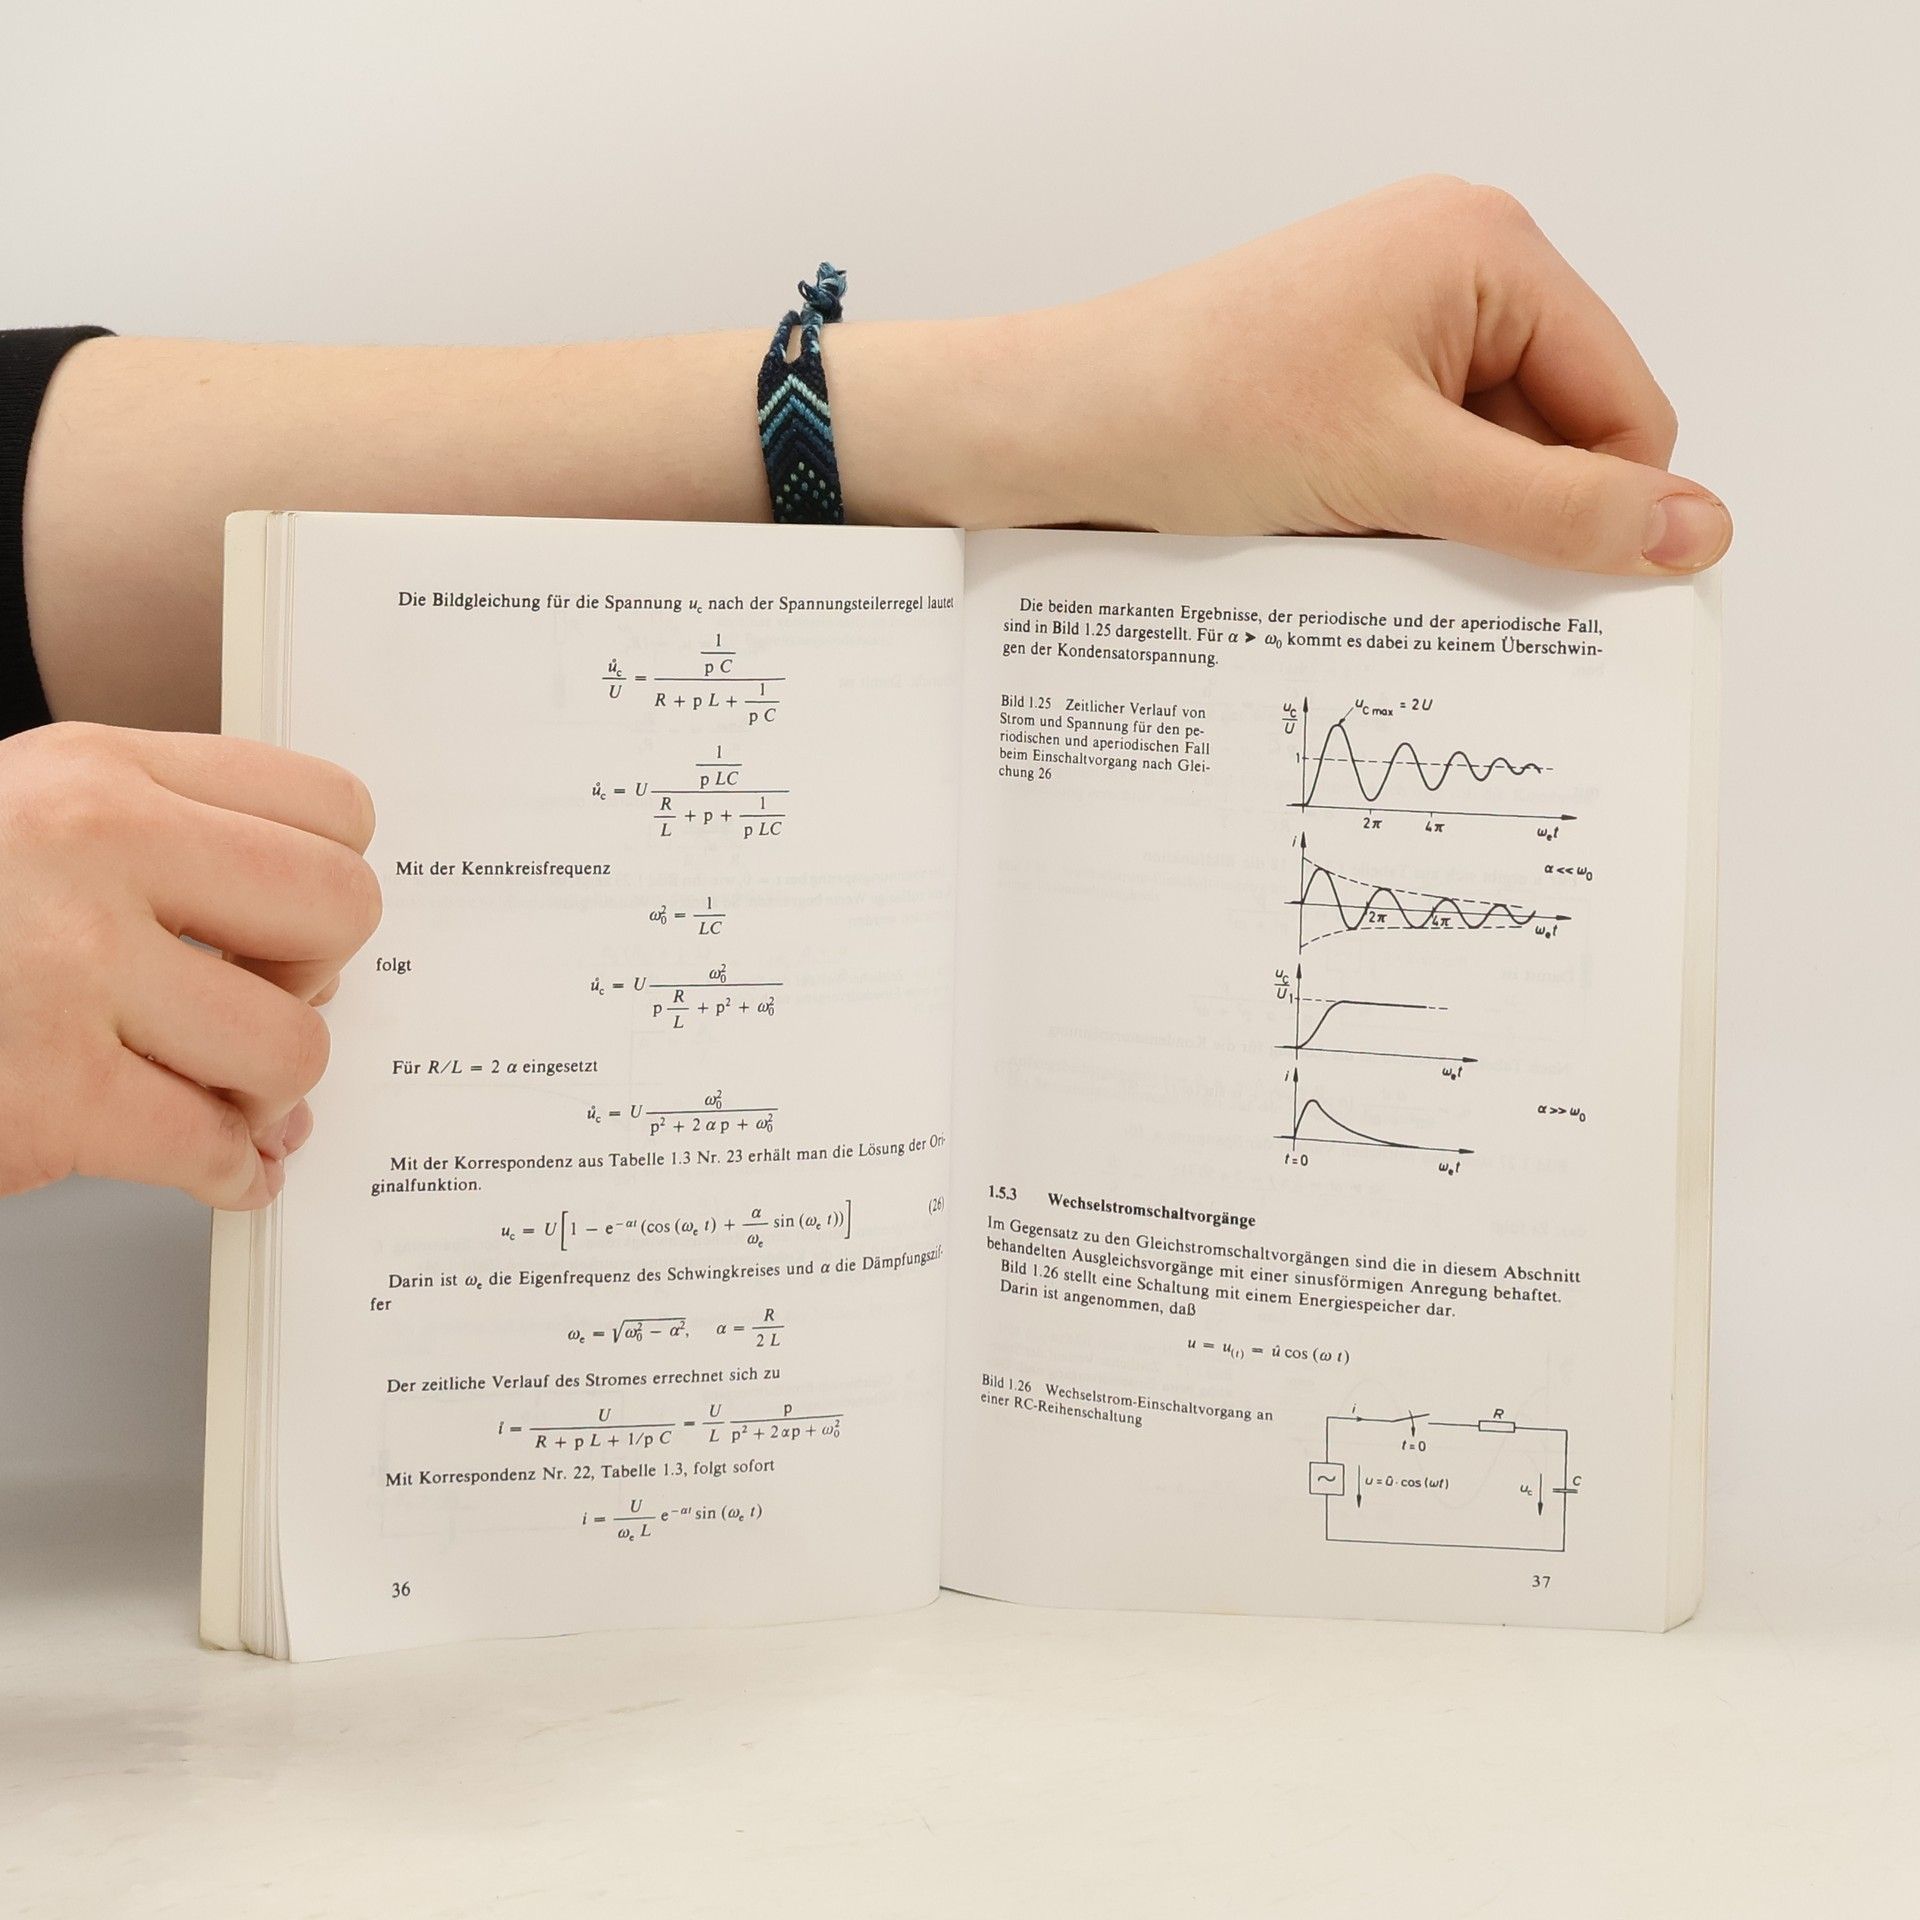 Die Bildgleichung für die Spannung u_c nach der Spannungsteilerregel lautet
ů_c / U = (1 / p C) / (R + p L + 1 / p C)
ů_c = U (1 / p LC) / (R / L + p + 1 / p LC)
Mit der Kennkreisfrequenz
ω₀² = 1 / LC
folgt
ů_c = U ω₀² / (p R / L + p² + ω₀²)
Für R/L = 2 α eingesetzt
ů_c = U ω₀² / (p² + 2 α p + ω₀²)
Mit der Korrespondenz aus Tabelle 1.3 Nr. 23 erhält man die Lösung der Ori-
ginalfunktion.
u_c = U [1 − e^(−αt) (cos (ω_e t) + α / ω_e sin (ω_e t))] (26)
Darin ist ω_e die Eigenfrequenz des Schwingkreises und α die Dämpfungszif-
fer
ω_e = √(ω₀² − α²), α = R / 2 L
Der zeitliche Verlauf des Stromes errechnet sich zu
i = U / (R + p L + 1/p C) = U / L p / (p² + 2 α p + ω₀²)
Mit Korrespondenz Nr. 22, Tabelle 1.3, folgt sofort
i = U / (ω_e L) e^(−αt) sin (ω_e t)
36
Die beiden markanten Ergebnisse, der periodische und der aperiodische Fall,
sind in Bild 1.25 dargestellt. Für α > ω₀ kommt es dabei zu keinem Überschwin-
gen der Kondensatorspannung.
Bild 1.25 Zeitlicher Verlauf von
Strom und Spannung für den pe-
riodischen und aperiodischen Fall
beim Einschaltvorgang nach Glei-
chung 26
u_c / U
u_c max = 2U
1
2π 4π ω_e t
i
α << ω₀
2π 4π ω_e t
u_c / U
1
ω_e t
i
α >> ω₀
t=0 ω_e t
1.5.3 Wechselstromschaltvorgänge
Im Gegensatz zu den Gleichstromschaltvorgängen sind die in diesem Abschnitt
behandelten Ausgleichsvorgänge mit einer sinusförmigen Anregung behaftet.
Bild 1.26 stellt eine Schaltung mit einem Energiespeicher dar.
Darin ist angenommen, daß
u = u_(t) = û cos (ω t)
Bild 1.26 Wechselstrom-Einschaltvorgang an
einer RC-Reihenschaltung
i
R
t=0
~
u = û · cos (ωt)
u_c
C
37